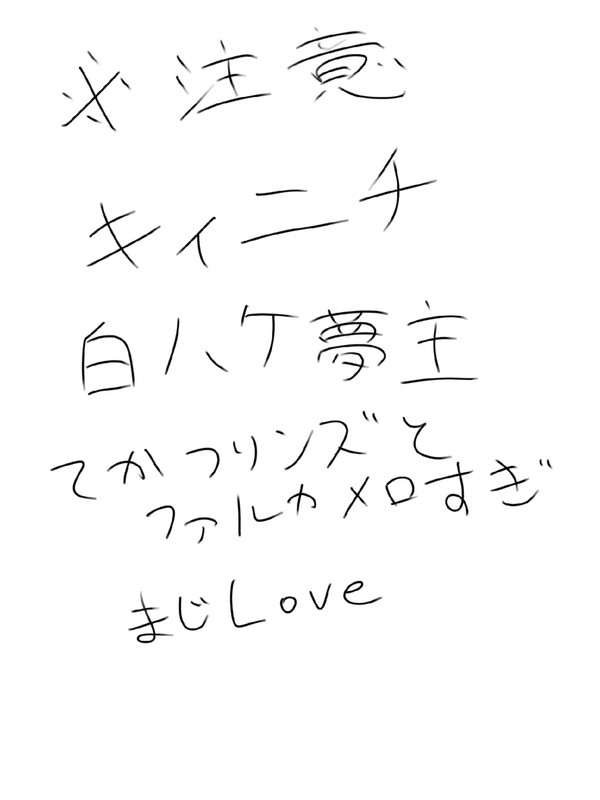 ※注意
キィニチ
白ハケ夢主
てかフリンズと
ファルカメロすぎ
まじLove